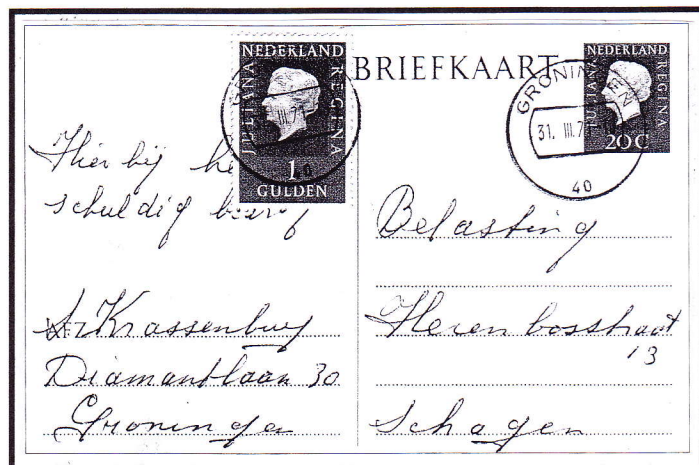 NEDERLAND
JULIANA REGINA
1
GULDEN
BRIEFKAART
NEDERLAND
JULIANA REGINA
20C
GRONINGEN
31. III.7
40
Hier bij he
schuldig
Krassenburg
Diamantlaan 30
Groningen
Belasting
Herenbosstraat
13
Schagen